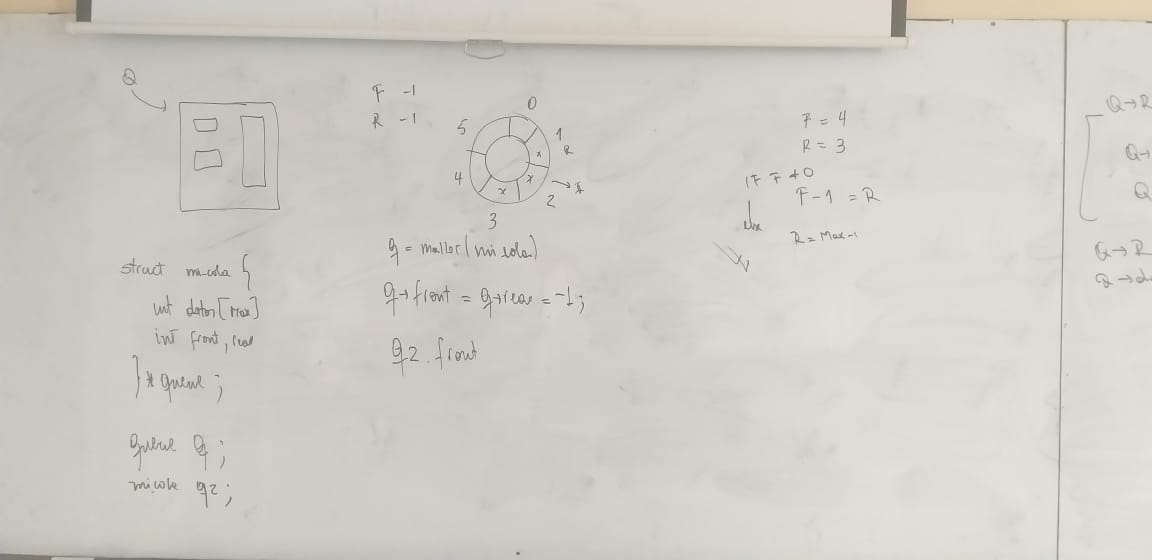 Q
struct mi_cola {
int datos[Max]
int front, rear
} * queue ;
queue q ;
micola q2 ;
F -1
R -1
0
5
1
R
x
x
x
4
2
3
q = malloc(mi cola)
q→front = q→rear = -1;
q2.front
F = 4
R = 3
IF F ≠ 0
F-1 = R
else
R = Max-1
Q→R
Q→
Q
Q→R
Q→da